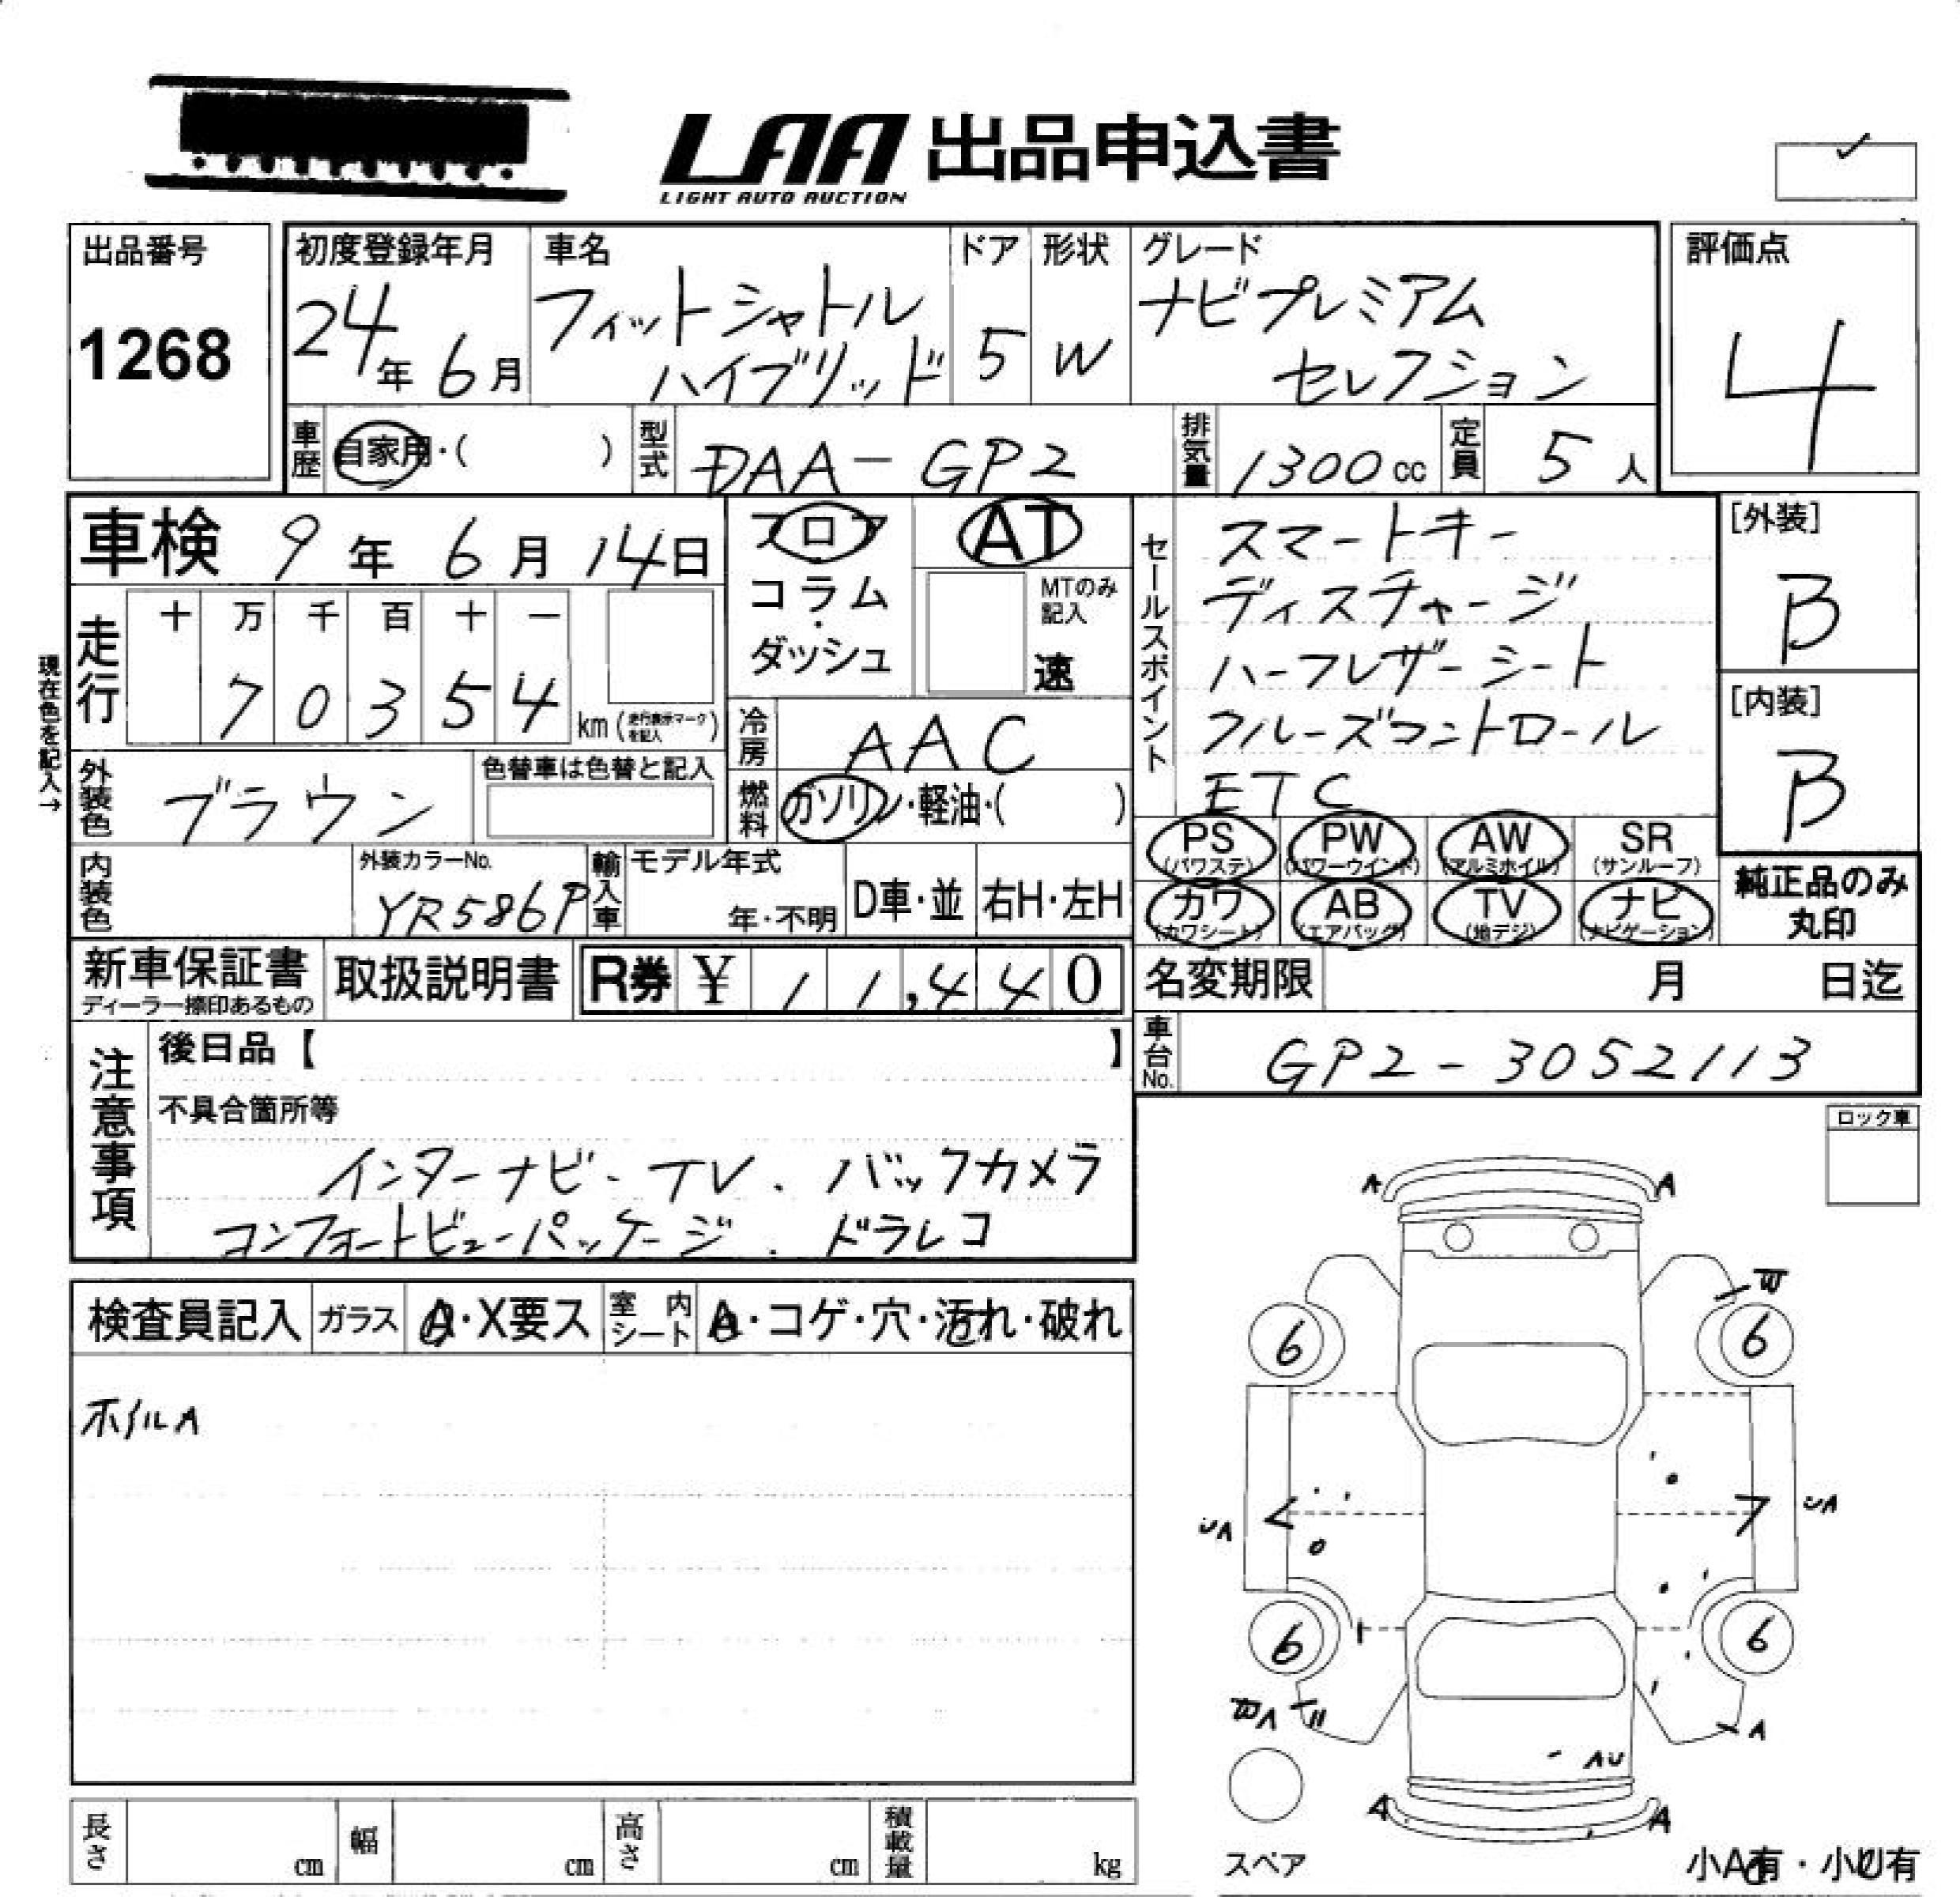 LAA 出品申込書
LIGHT AUTO AUCTION
出品番号
1268
初度登録年月
24年 6月
車名
フィットシャトル
ハイブリッド
ドア
5
形状
W
グレード
ナビプレミアム
セレクション
評価点
4
車歴 自家用・( )
型式 DAA-GP2
排気量 1300cc
定員 5人
車検 9年 6月 14日
フロア
コラム
・
ダッシュ
AT
MTのみ
記入
速
セールスポイント
スマートキー
ディスチャージ
ハーフレザーシート
クルーズコントロール
ETC
[外装]
B
[内装]
B
現在色を記入→
走行
十 万 千 百 十 一
7 0 3 5 4
km (走行表示マークを記入)
冷房 AAC
外装色 ブラウン
色替車は色替と記入
燃料 ガソリン・軽油・( )
PS (パワステ)
PW (パワーウインド)
AW (アルミホイル)
SR (サンルーフ)
カワ (カワシート)
AB (エアバッグ)
TV (地デジ)
ナビ (ナビゲーション)
純正品のみ
丸印
内装色
外装カラーNo.
YR586P
輸入車
モデル年式
年・不明
D車・並
右H・左H
新車保証書
ディーラー捺印あるもの
取扱説明書
R券 ¥ 11,440
名変期限 月 日迄
車台No. GP2-3052113
注意事項
後日品【 】
不具合箇所等
インターナビ・TV・バックカメラ
コンフォートビューパッケージ・ドラレコ
ロック車
検査員記入
ガラス A・X要ス
室内シート A・コゲ・穴・汚れ・破れ
ホイルA
A A
W
6 6
UA UA
6 6
A
AU
A A
スペア
小A有・小U有
長さ cm
幅 cm
高さ cm
積載量 kg